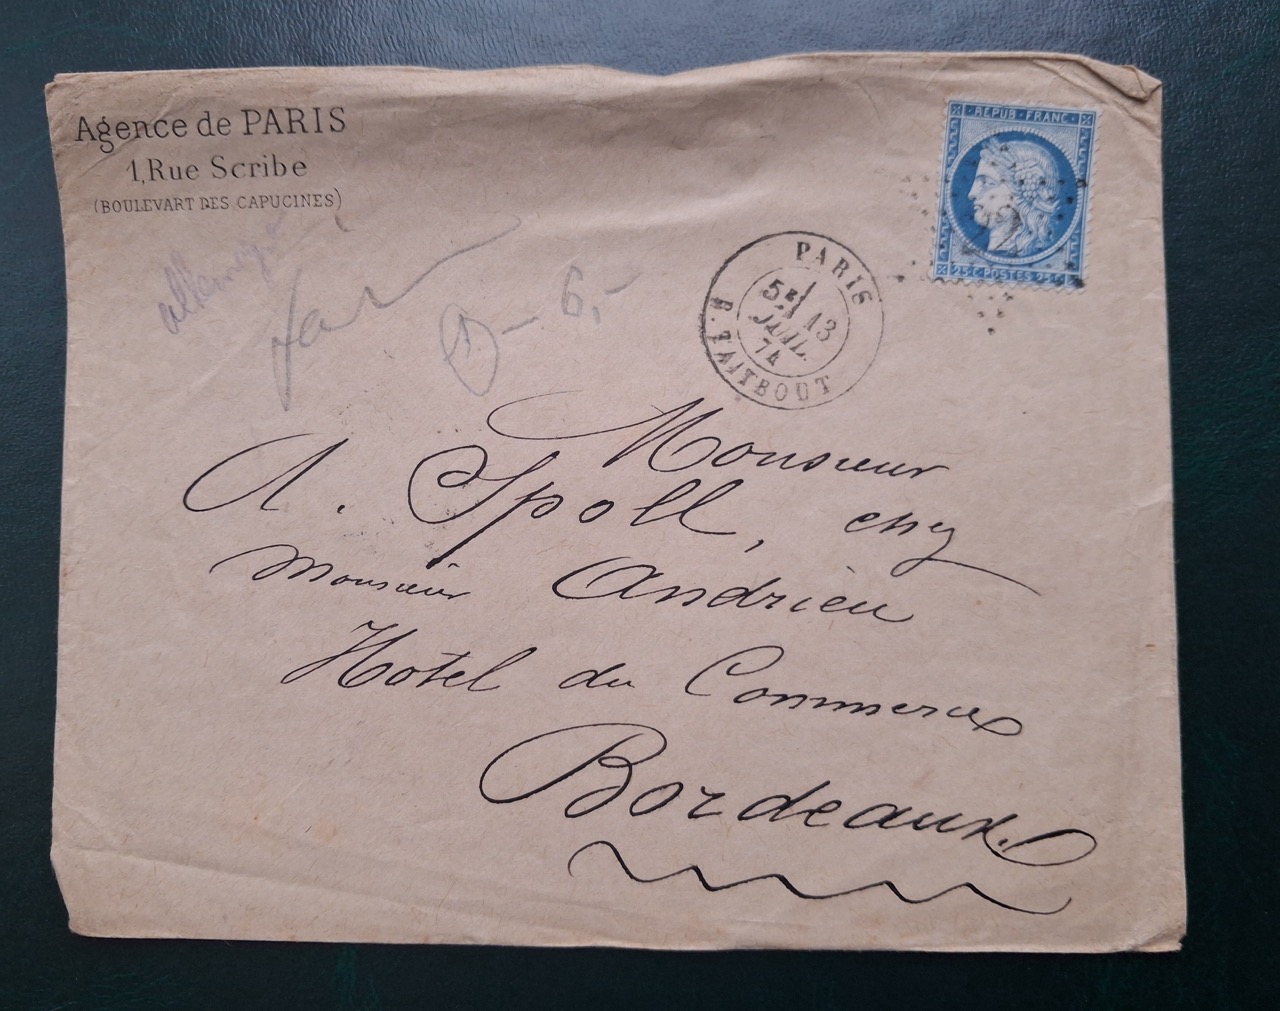 Agence de PARIS
1, Rue Scribe
(BOULEVART DES CAPUCINES)
REPUB · FRANC ·
25 C · POSTES 25 C
22
PARIS
5E
13
JUIL.
74
R. TAITBOUT
6,-
Monsieur
A. Spoll, chez
Monsieur Andrieu
Hotel du Commerce
Bordeaux.